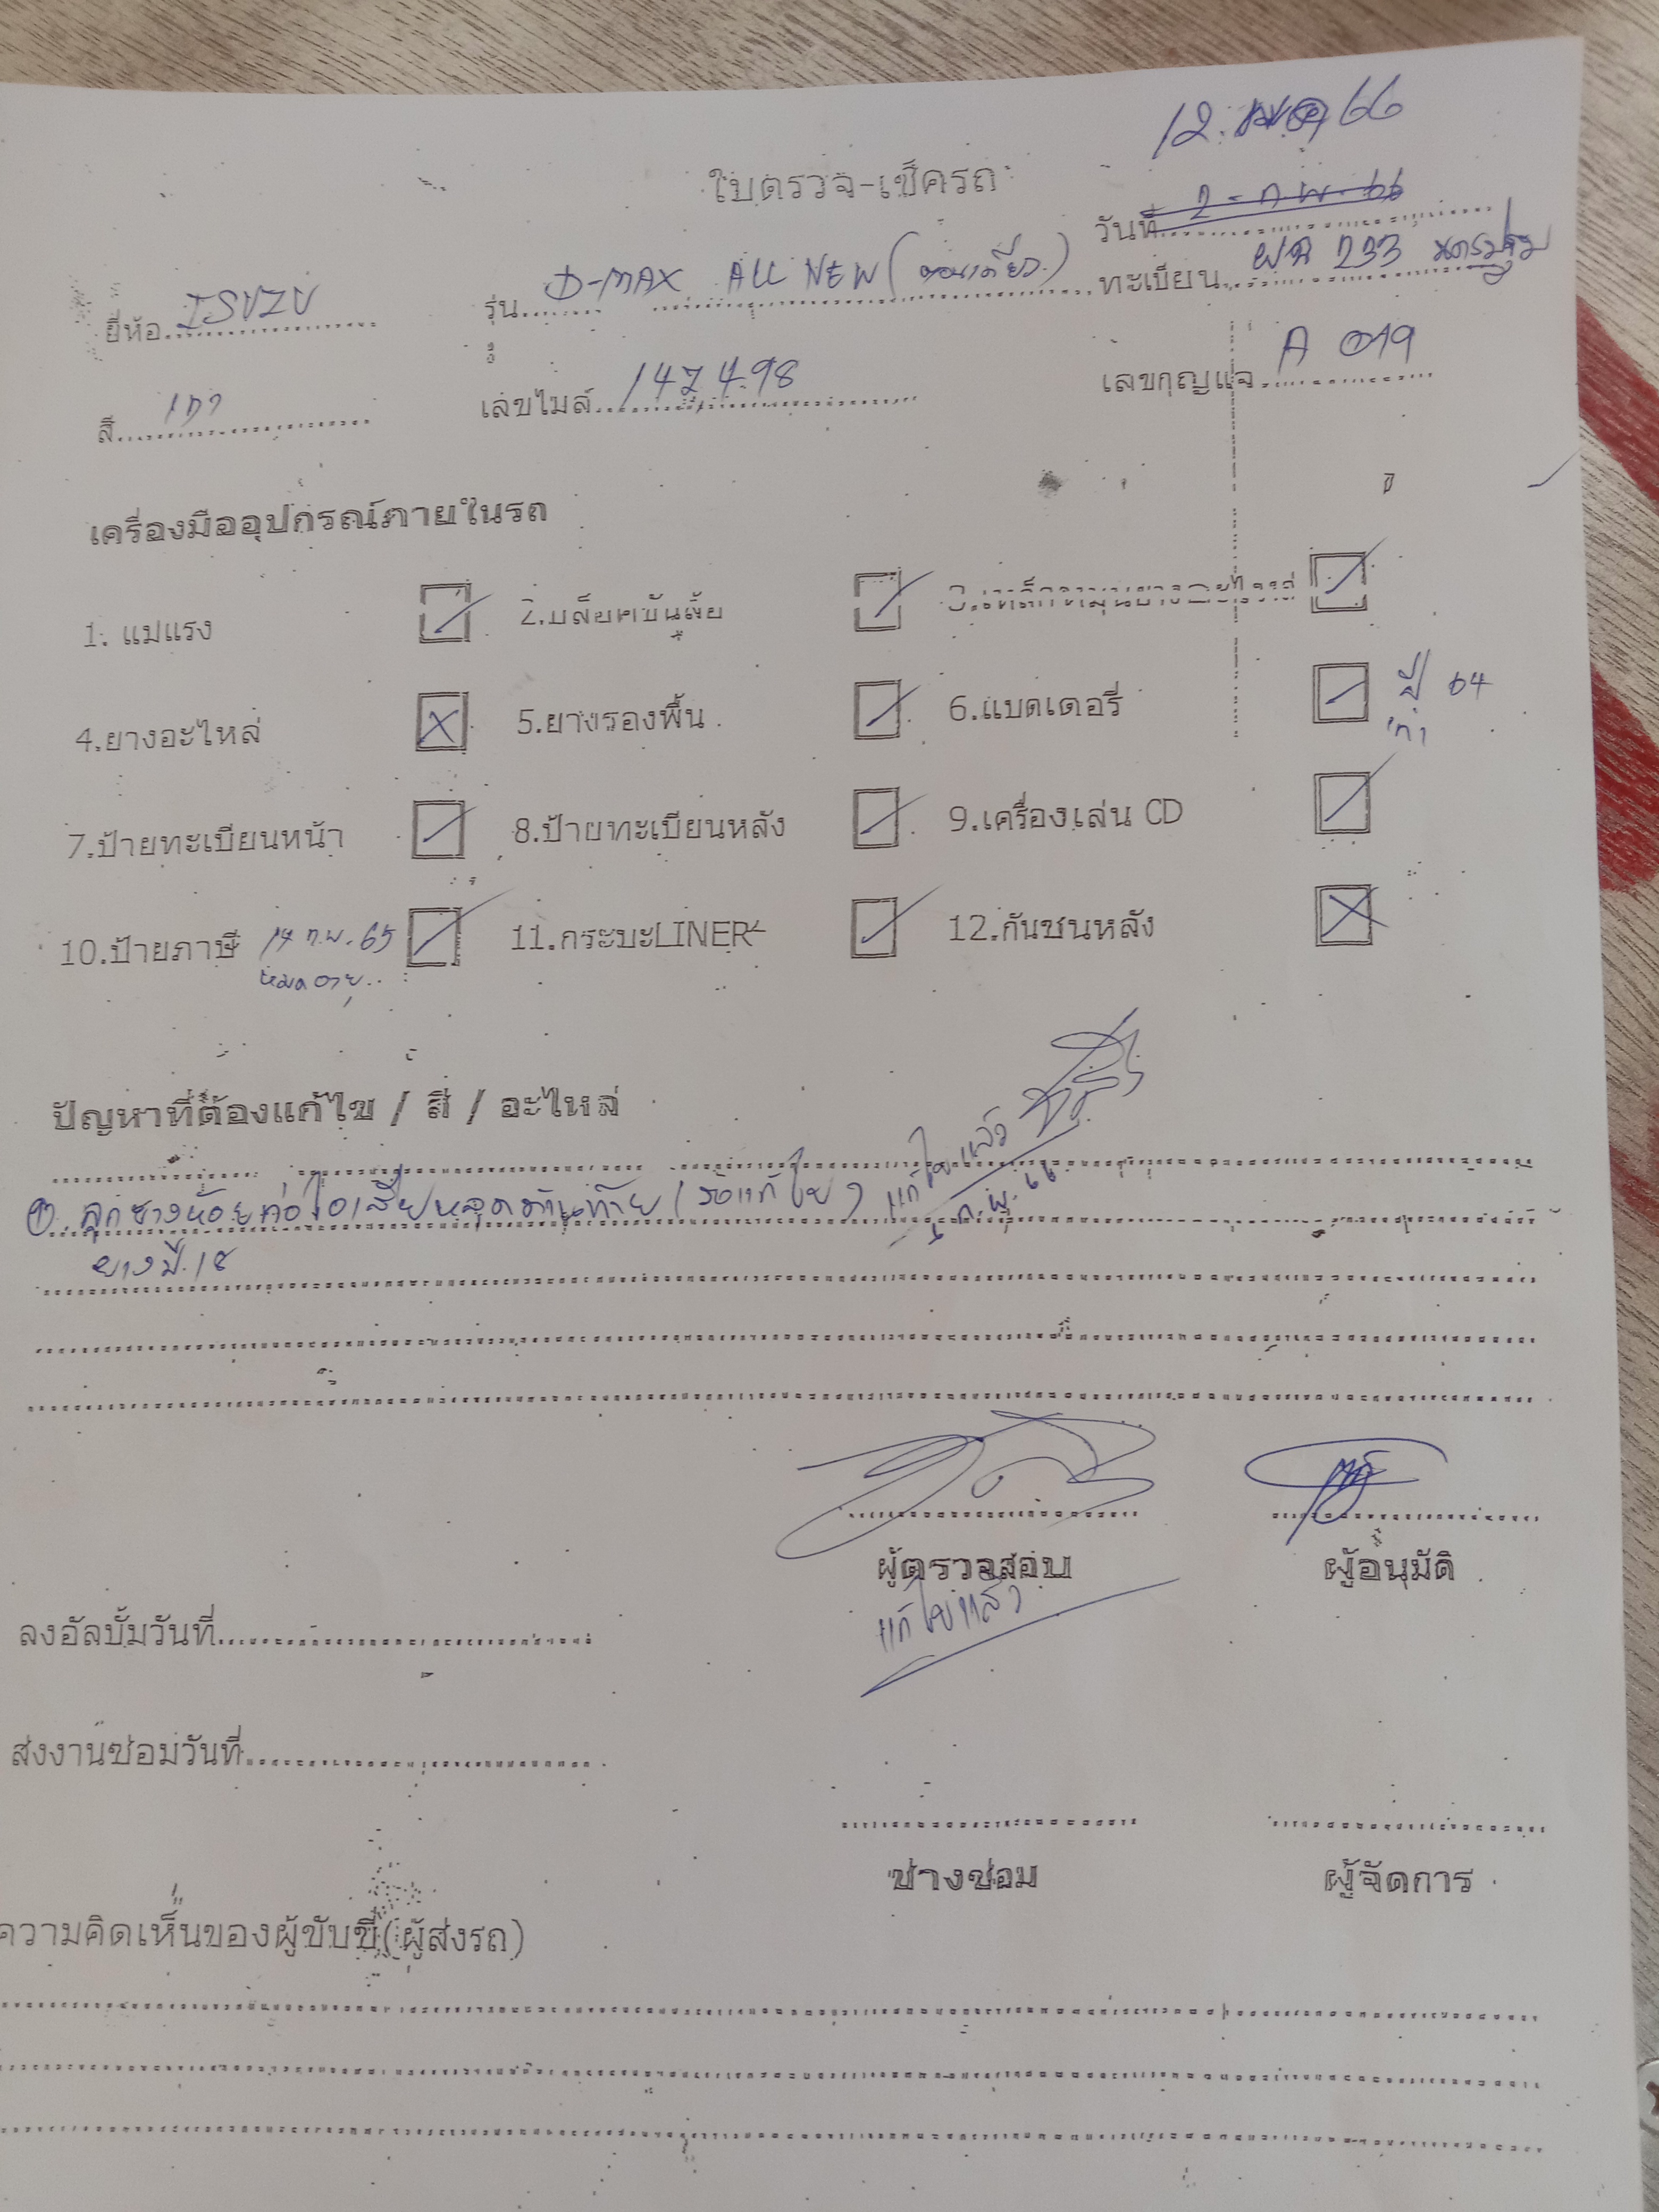 12. 66
ใบตรวจ-เช็ครถ
วันที่ 2 - ก.พ. 66
ยี่ห้อ ISUZU รุ่น D-MAX ALL NEW (ตอนเดียว) ทะเบียน 233 นครปฐม
สี เทา เลขไมล์ 147,498 เลขกุญแจ A 019
เครื่องมืออุปกรณ์ภายในรถ
1. แม่แรง 2.บล็อคขันล้อ
4.ยางอะไหล่ 5.ยางรองพื้น 6.แบตเตอรี่ ปี 64
เก่า
7.ป้ายทะเบียนหน้า 8.ป้ายทะเบียนหลัง 9.เครื่องเล่น CD
10.ป้ายภาษี 14 ก.พ. 65 11.กระบะLINER 12.กันชนหลัง
หมดอายุ
ปัญหาที่ต้องแก้ไข / สี / อะไหล่
① ลูกยางห้อยท่อไอเสียหลุดด้านท้าย (รอแก้ไข) แก้ไขแล้ว
ก.พ. 66
ยางปี 18
ผู้ตรวจสอบ ผู้อนุมัติ
แก้ไขแล้ว
ลงอัลบั้มวันที่
ส่งงานซ่อมวันที่
ช่างซ่อม ผู้จัดการ
ความคิดเห็นของผู้ขับขี่(ผู้ส่งรถ)